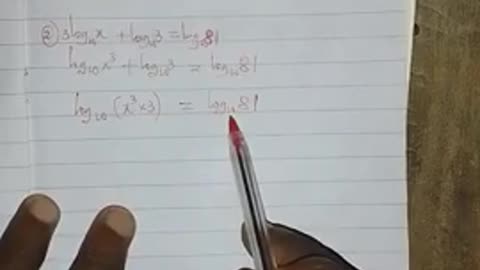 ② 3log₁₀x + log₁₀3 = log₁₀81
log₁₀x³ + log₁₀3 = log₁₀81
log₁₀(x³×3) = log₁₀81